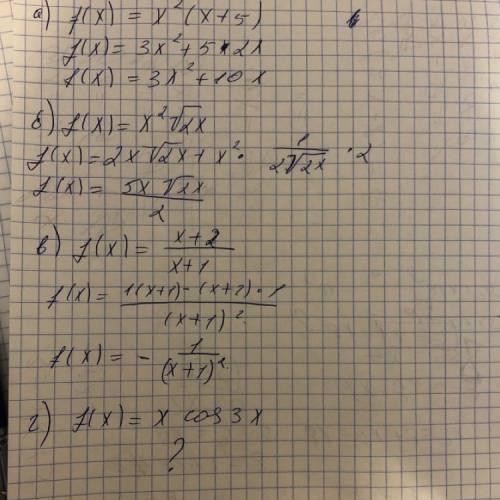 а) f(x) = x²(x+5)
f(x) = 3x²+5·2x
f(x) = 3x²+10x
б) f(x) = x²√2x
f(x) = 2x√2x + x² · 1/(2√2x) · 2
f(x) = 5x√2x/2
в) f(x) = (x+2)/(x+1)
f(x) = (1(x+1)-(x+2)·1)/(x+1)²
f(x) = - 1/(x+1)²
г) f(x) = x cos3x
?